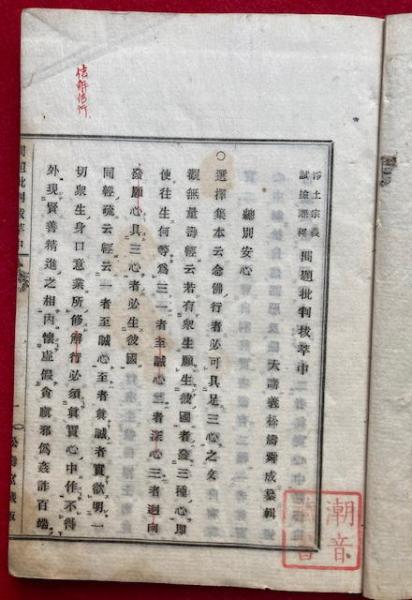 淨土宗義
試驗應稱 問題批判拔萃中
大講義松濤舜成纂輯
總別安心
○選擇集本云念佛行者必可具足三心之文
觀無量壽經云若有衆生願生彼國者發三種心即
使往生何等爲三一者至誠心二者深心三者迴向
發願心具三心者必生彼國
同經疏云經云一者至誠心至者眞誠者實欲明一
切衆生身口意業所修解行必須眞實心中作不得
外現賢善精進之相内懷虛假貪瞋邪僞奸詐百端
問題批判拔萃中
潮音